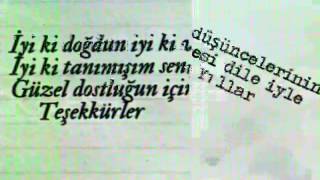 İyi ki doğdun iyi ki
İyi ki tanımışım sen
Güzel dostluğun için
Teşekkürler
düşüncelerinin
esi dile iyle
yıllar